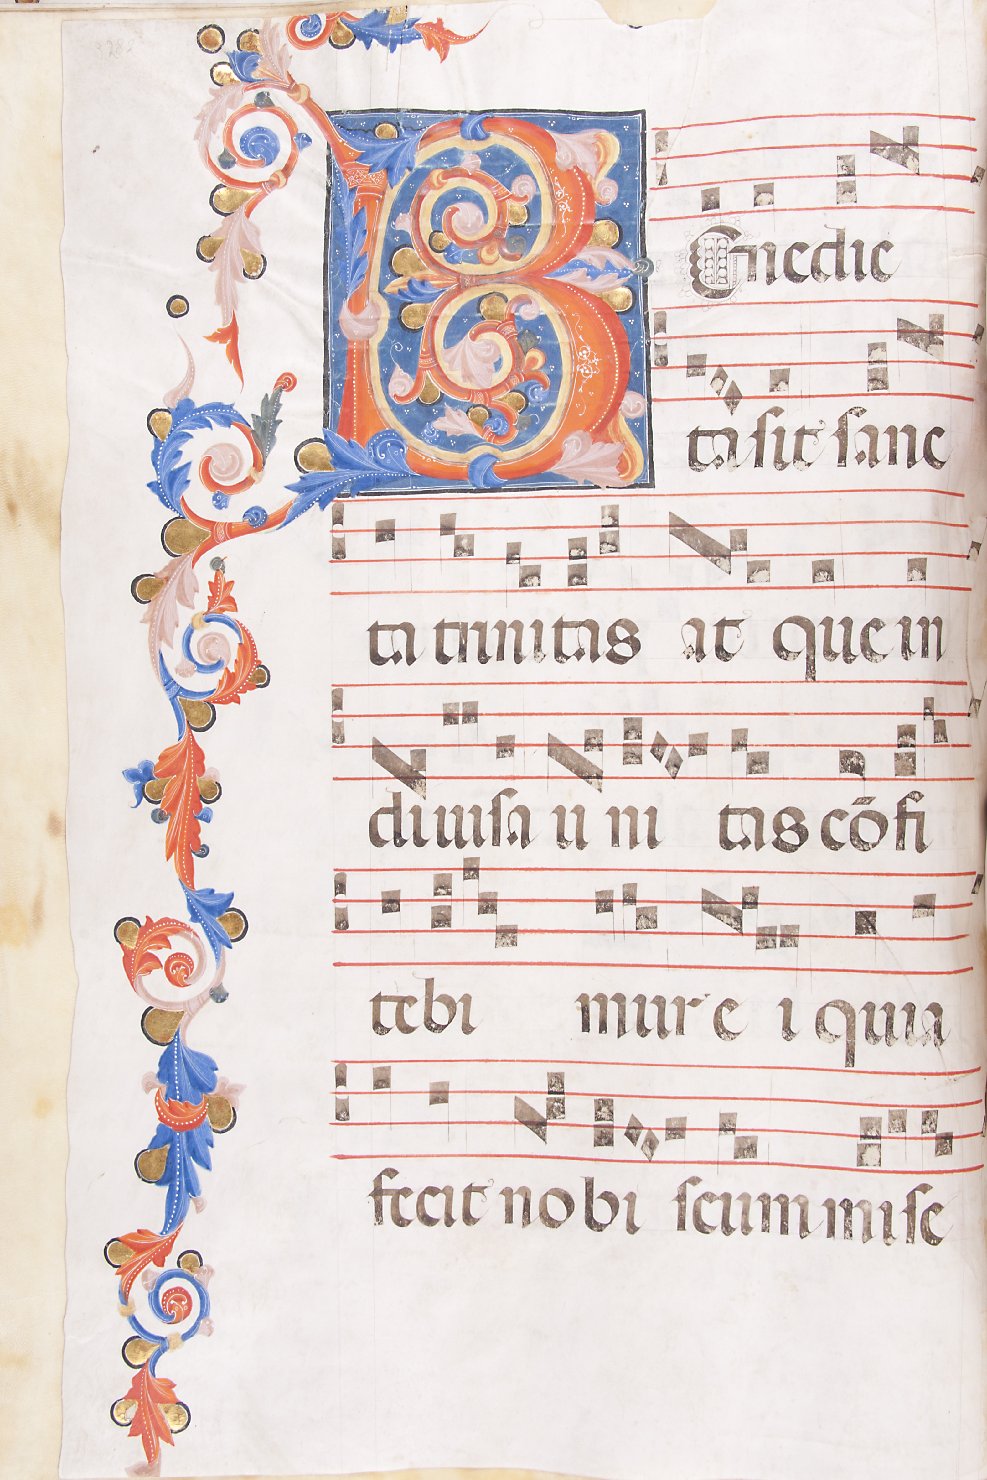 BEnedic
ta sit sanc
ta trinitas at que in
diuisa uni tas cōfi
tebi mur e i quia
fecit nobi scum mise